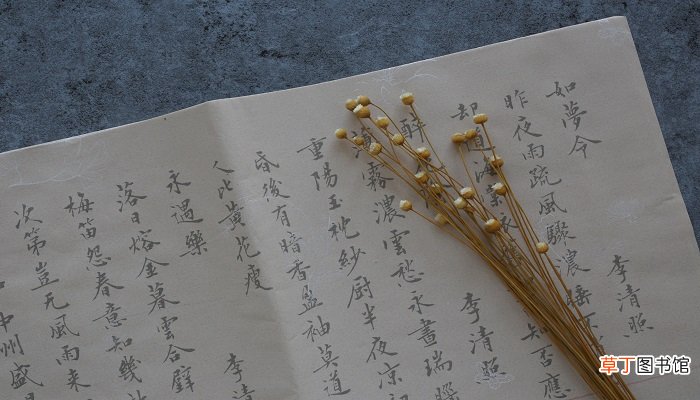 如夢令
李清照
昨夜雨疏風驟濃睡不
却道海棠依舊
知否應
醉
李清照
薄霧濃雲愁永晝瑞腦
重陽玉枕紗厨半夜凉初
昏後有暗香盈袖莫道
人比黃花瘦
永遇樂
李清
落日熔金暮雲合璧
梅笛怨春意知幾許
次第豈无風雨来
中州盛
草丁图书馆